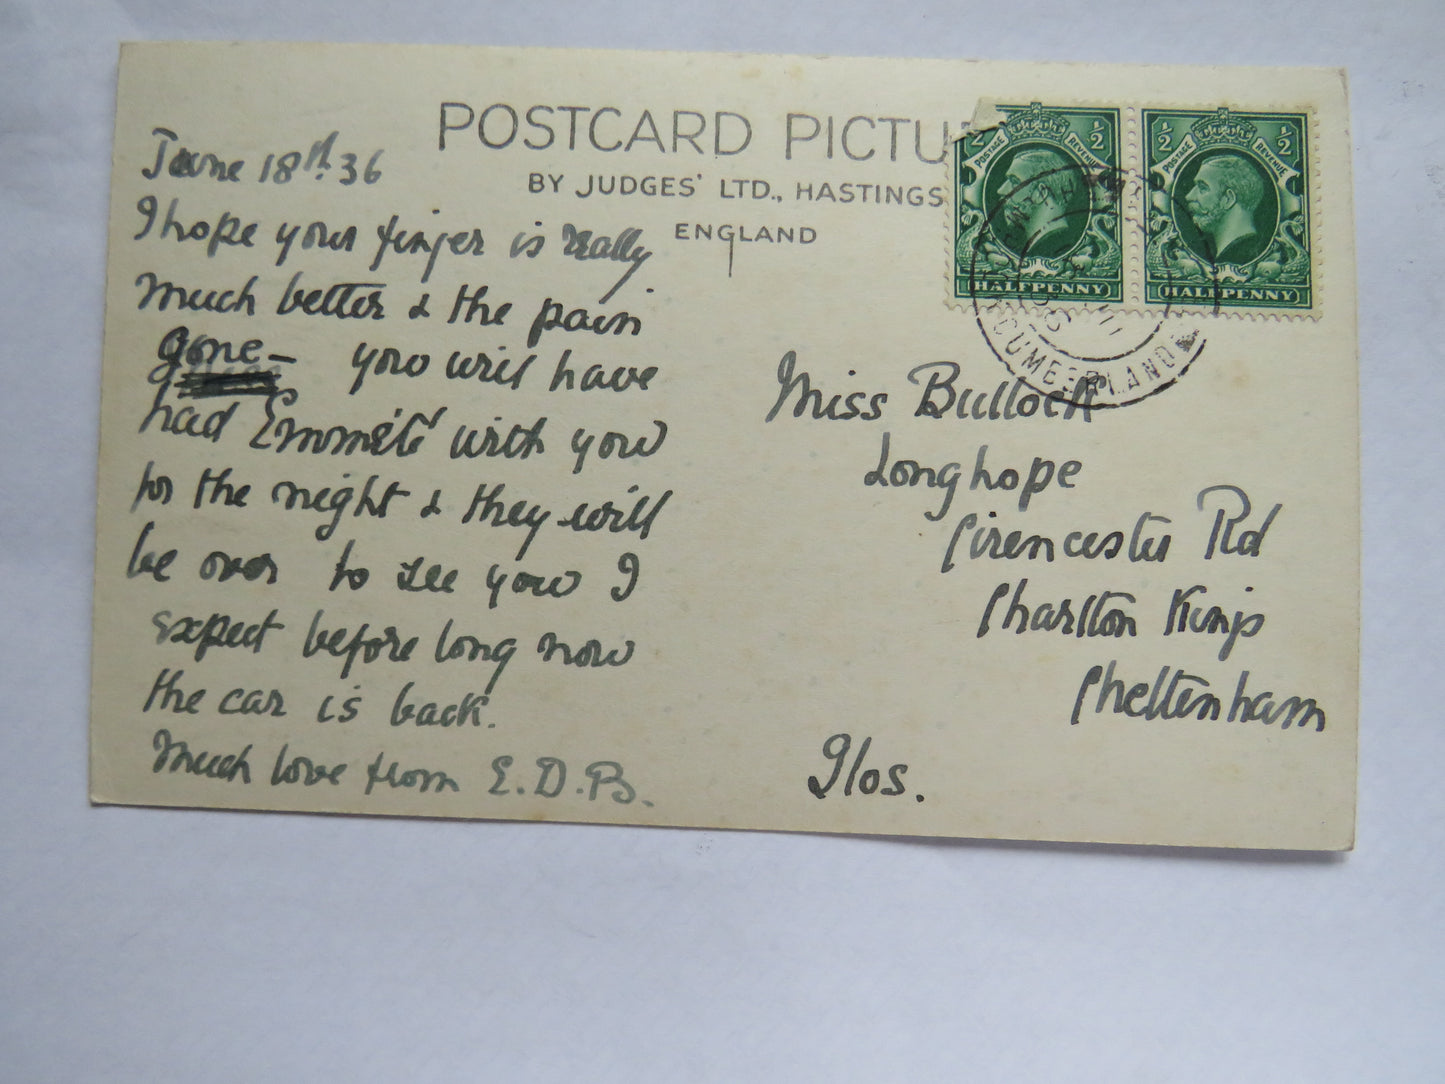 POSTCARD PICTU
BY JUDGES' LTD., HASTINGS
ENGLAND
June 18th. 36
I hope your finger is really
much better & the pain
gone – you will have
had Emmété with you
for the night & they will
be over to see you I
expect before long now
the car is back.
Much love from E.D.B.
½ ½
POSTAGE REVENUE
HALFPENNY
½ ½
POSTAGE REVENUE
HALFPENNY
CUMBERLAND
Miss Bullock
Longhope
Cirencester Rd
Charlton Kings
Cheltenham
Glos.